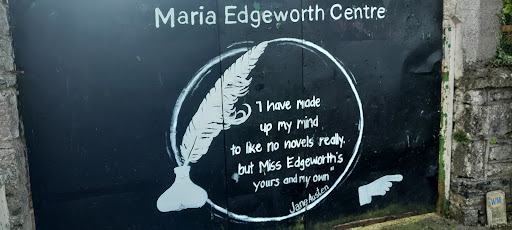 Maria Edgeworth Centre
"I have made
up my mind
to like no novels really,
but Miss Edgeworth's
yours and my own"
Jane Austen
WM